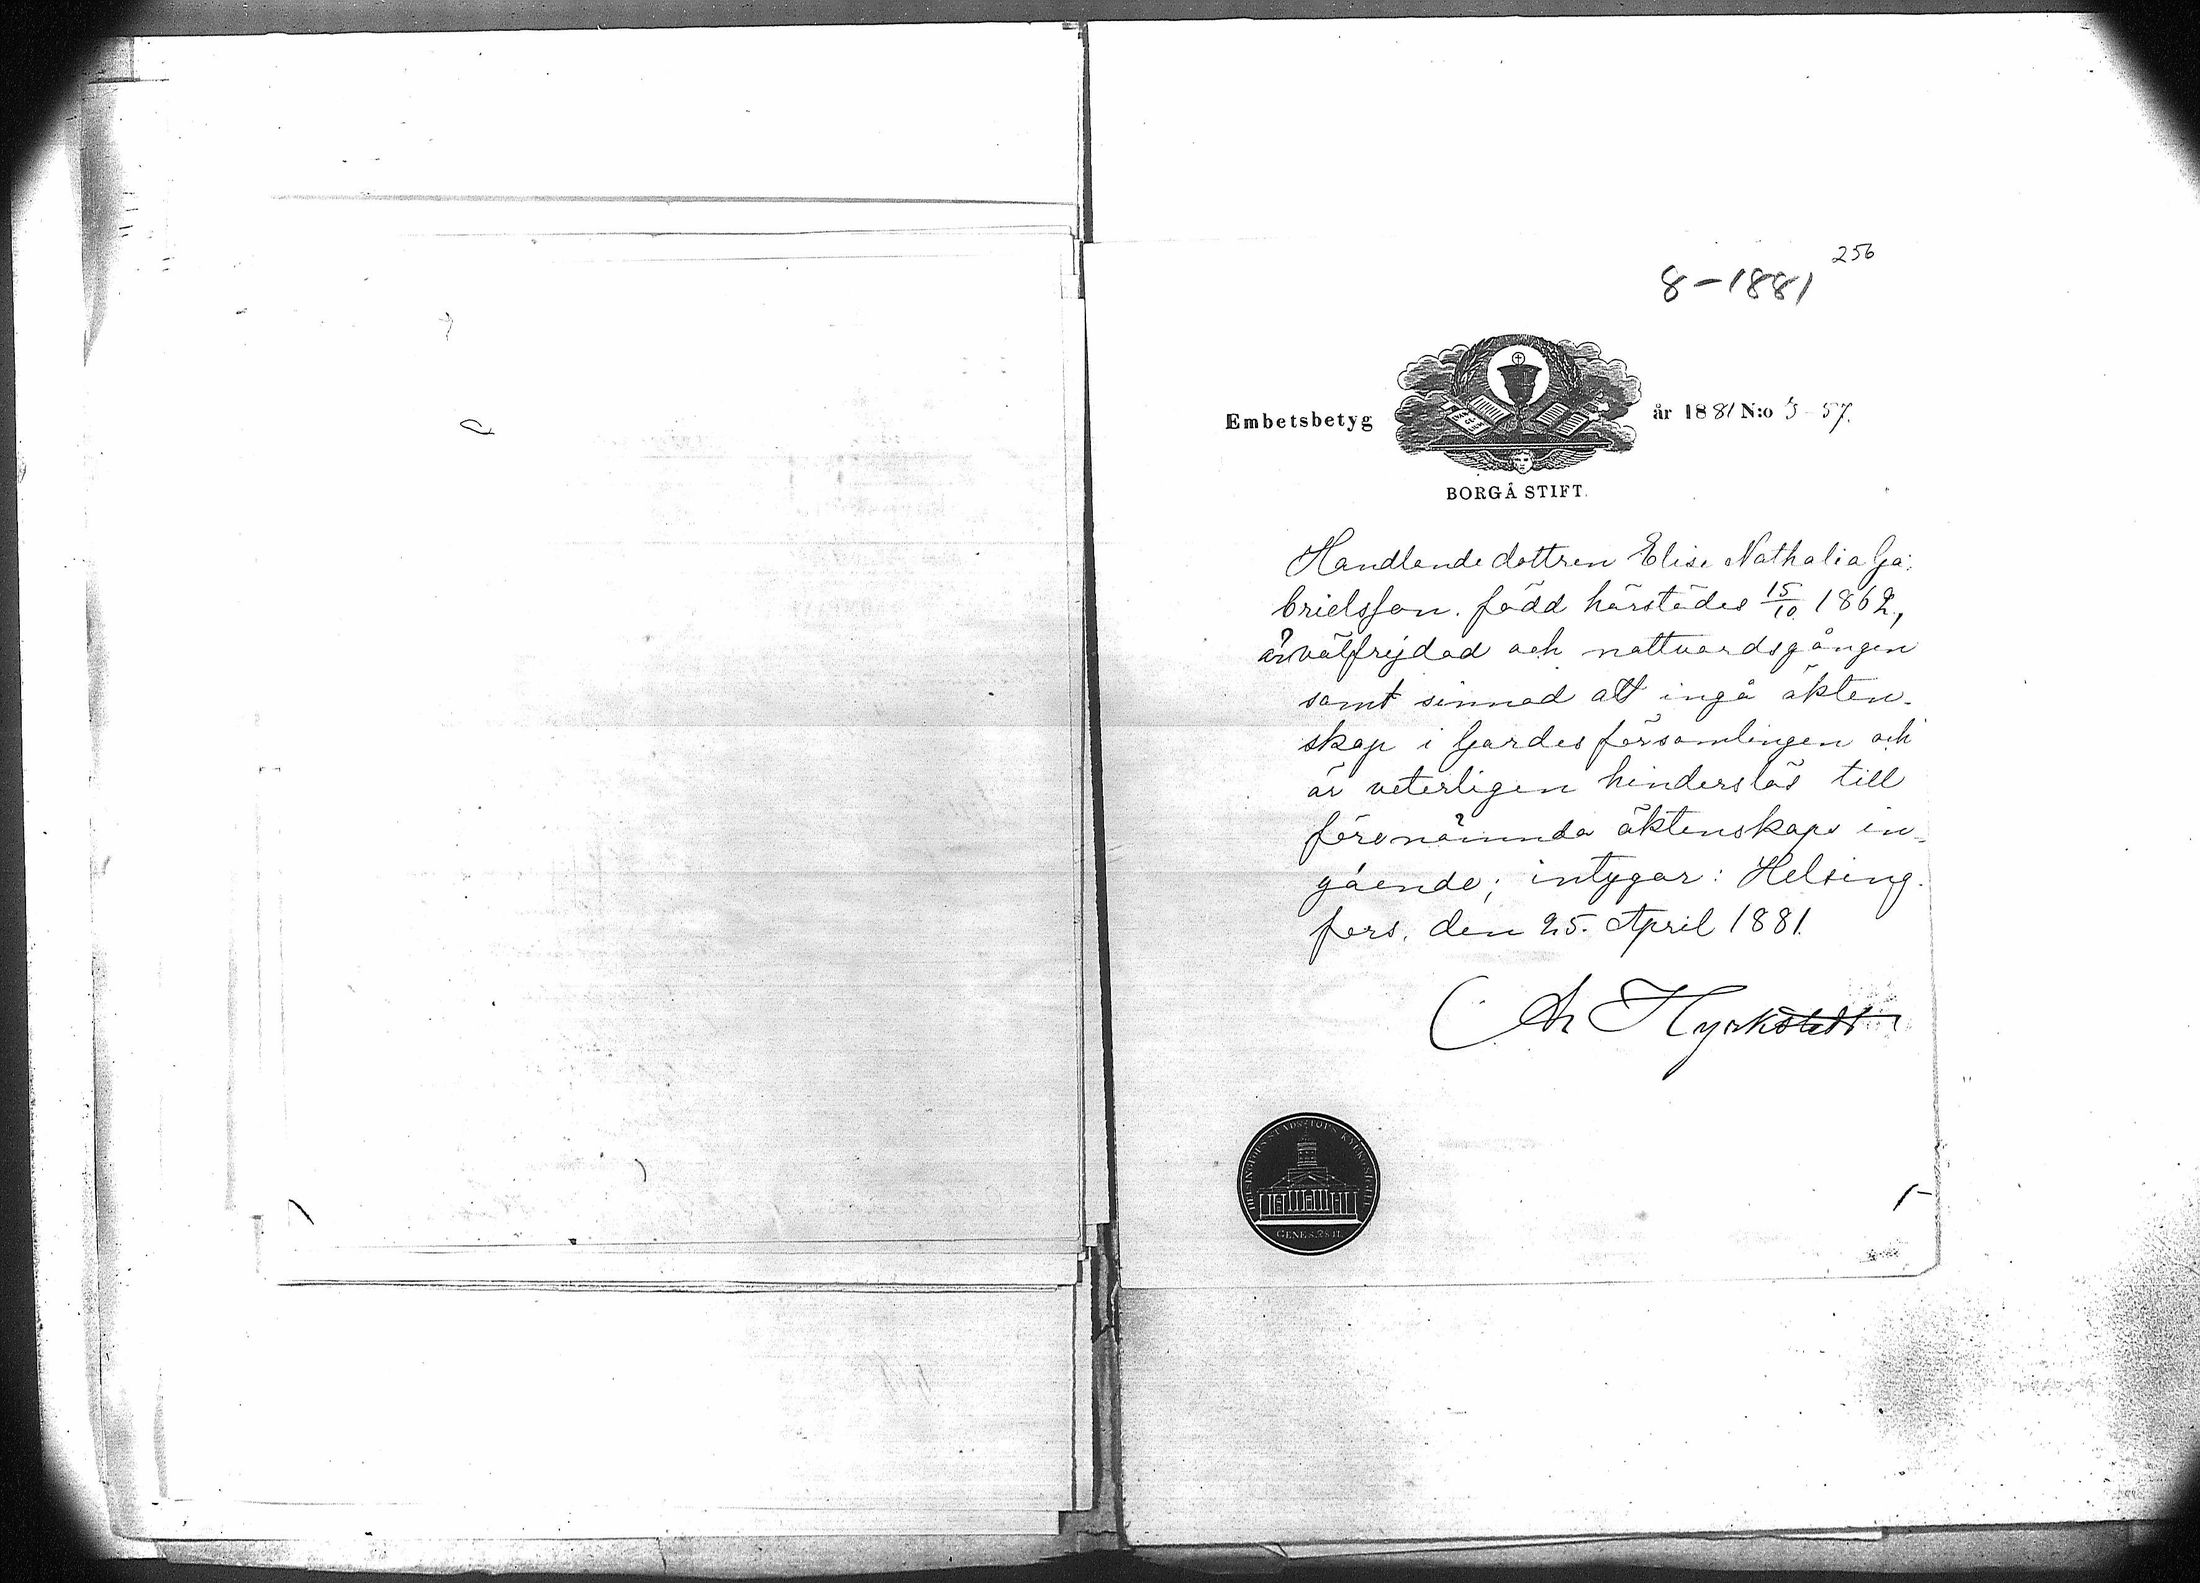 256
8-1881
Embetsbetyg år 1881 N:o 57.
BORGÅ STIFT.
Handlande dottren Elise Nathalia Ga-
brielsson. född härstädes 15/10 1862,
är välfrejdad och nattvardsgången
samt sinnad att ingå äkten-
skap i Gardesförsamlingen och
är veterligen hinderslös till
förenämnda äktenskaps in-
gående; intygar: Helsing-
fors, den 25. April 1881.